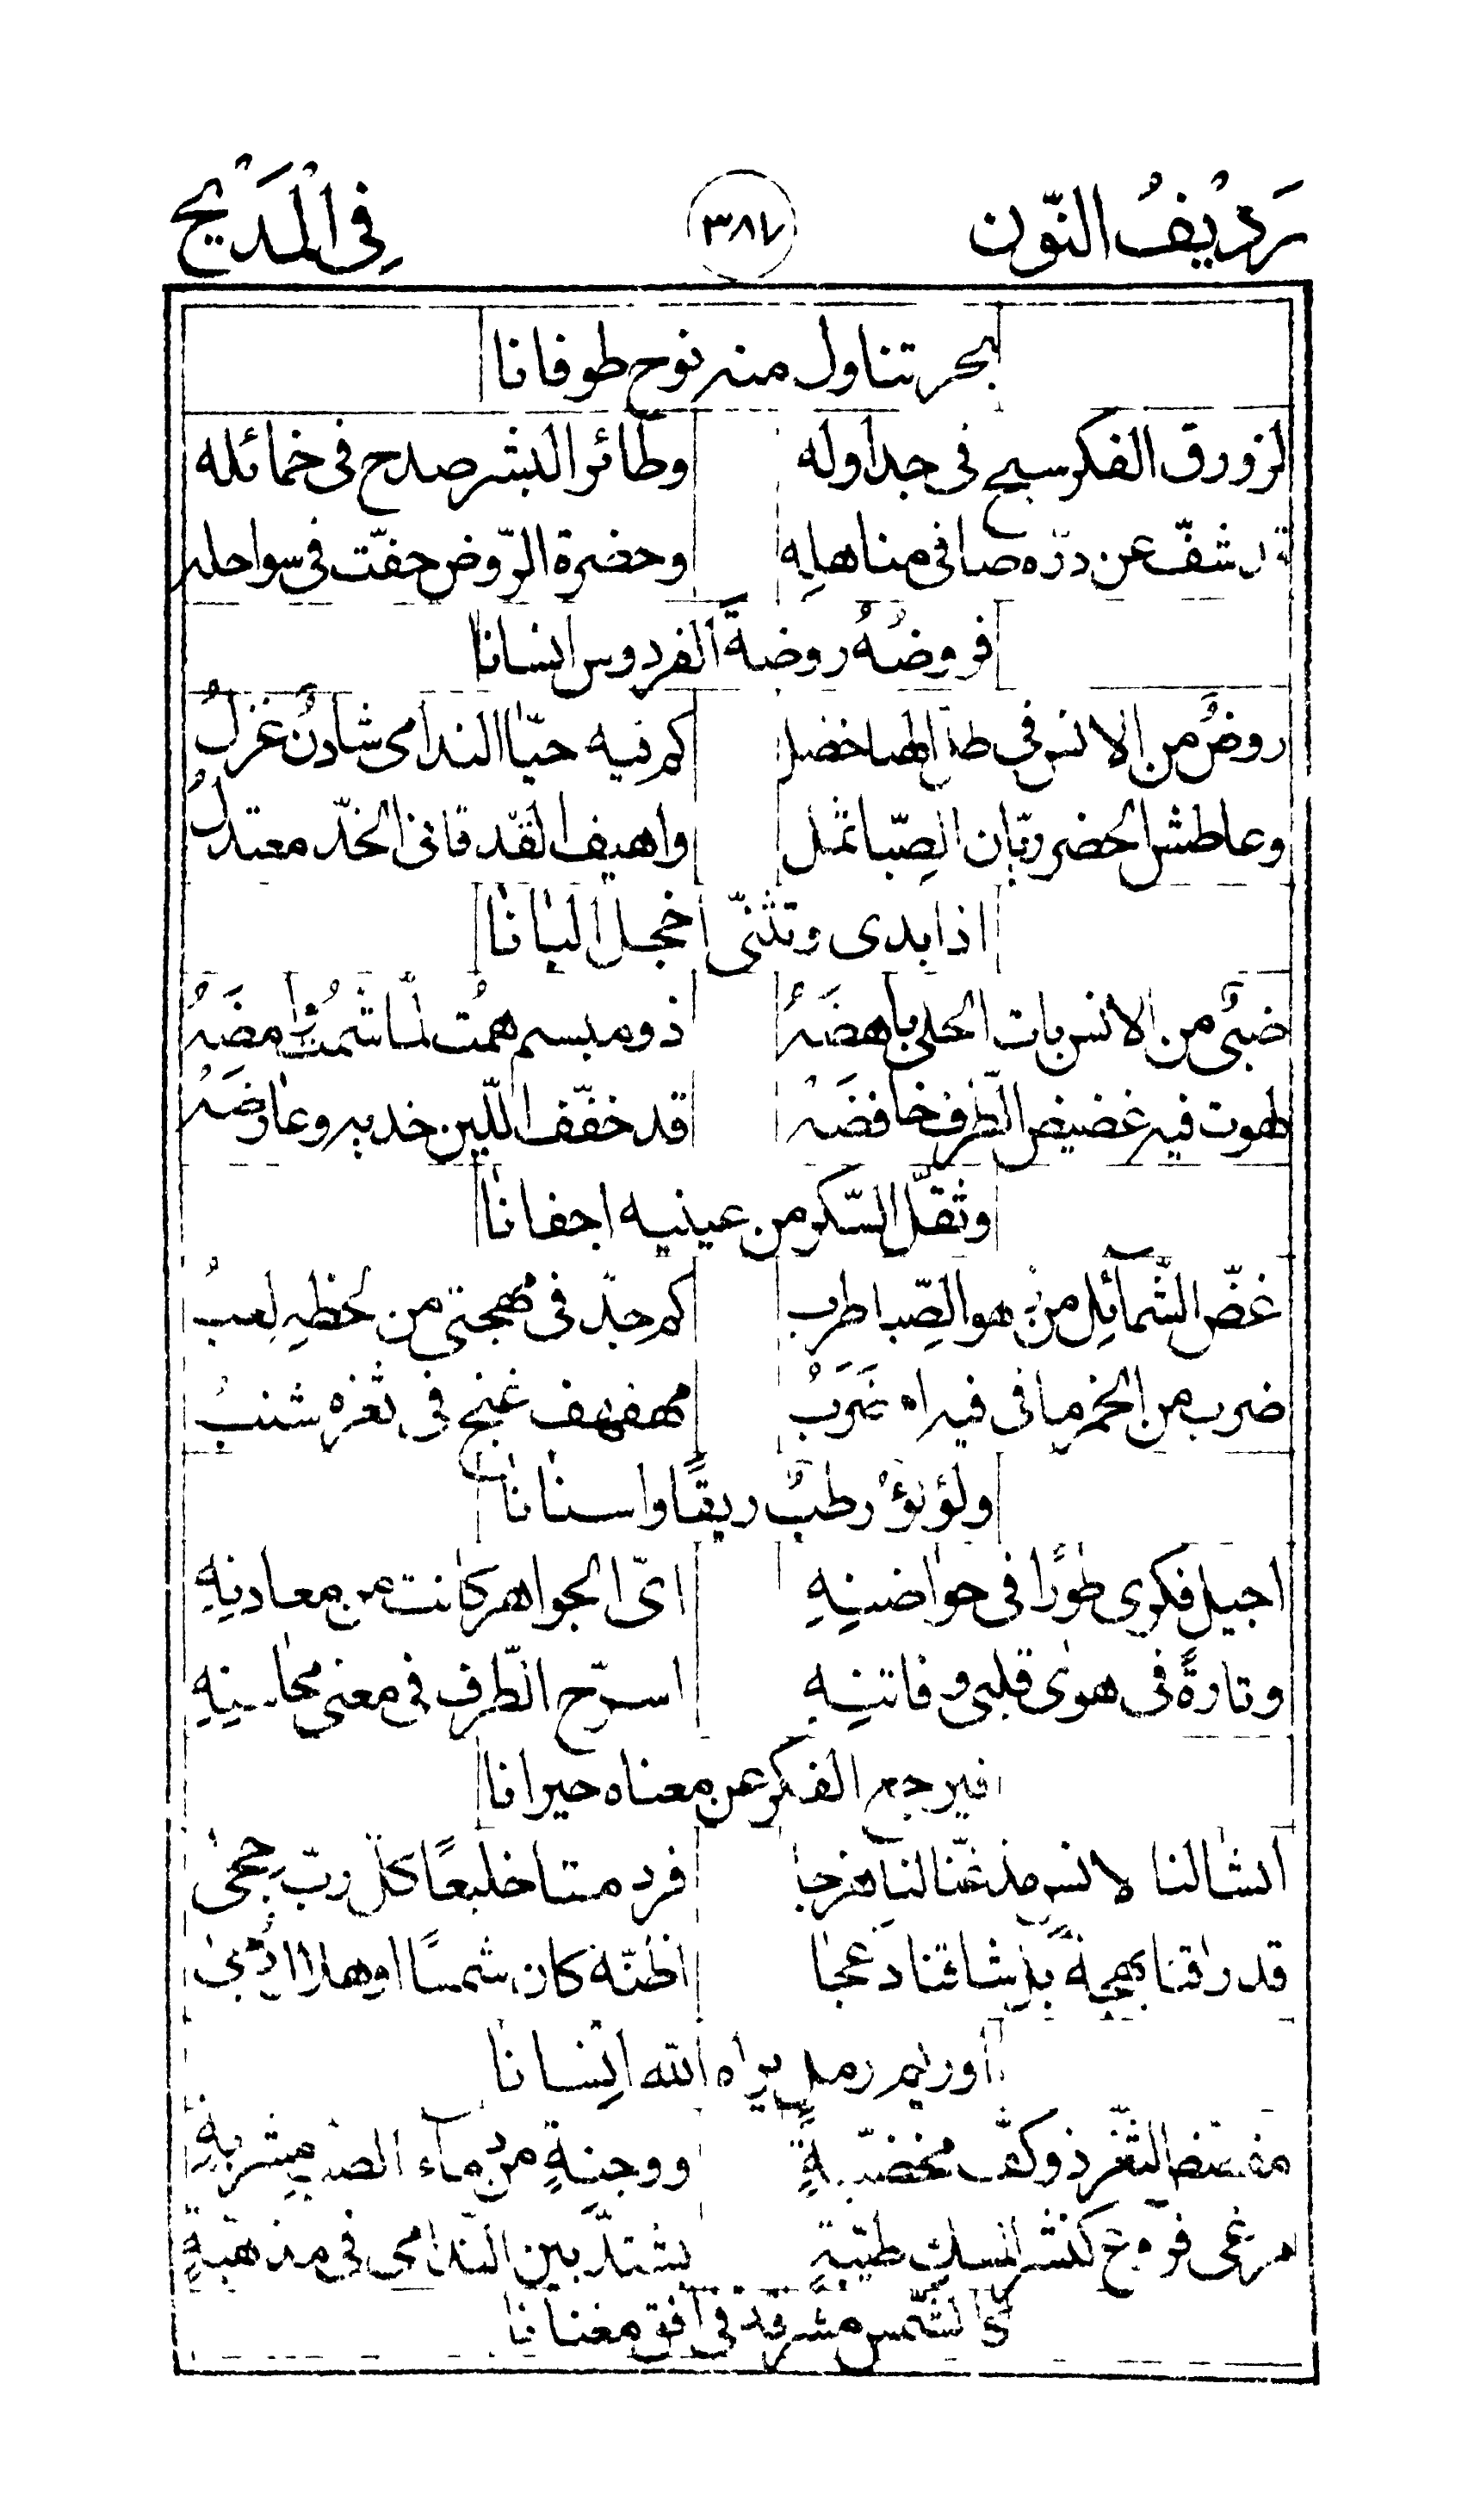 رَدِيْفُ النّون ٣٨٧ فِى الْمَدَيْحِ
بحر تناول منه نوح طوفانا
لزورق الفكر سبح فى جداوله وطائر البشر صدح فى خمائله
قد شفّ عن درّه صافى مناهلِهِ وحضرة الرّوض حفّت فى سواحله
فروضُهُ روضةَ الفردوس انسانا
روضٌ من الانس فى ظل البها خضل كم فيه حيّا الندامى شادنٌ غزلُ
وعاطش الخضر ريّان الصِّبا ثمل واهيف القدّ قانى الخدّ معتدلُ
اذا بدى وتثنّى اخجل البانا
ضبىٌ من الانس بات الحلى باهضَهُ ذو مبسم همْتُ لمّا شمْتُ وامضَهُ
طهوت فيه غضيض الطّرف خافضَهْ قد خفّف اللّين خديه وعارضَهُ
وثقّل السّكر من عينيه اجفانا
غضّ الشّمآئِل من هو الصِّبا طرب كم جدّ فى مهجتى من لحظِهِ لعبُ
ضرب من الخمر ما فى فيه اه ضَرَبْ مهفهف غنج فى ثغره شنبُ
ولؤلؤٌ رطبٌ ريقًا واسنانا
اجيل فكرى طورًا فى حواضنِهِ انّى الجواهر كانت من معادنِهِ
وتارةً فى هوى قلبى وفاتنِهِ اسرّح الطّرف فى معنى محاسنِهِ
فيرجع الفكر عن معناه حيرانا
انشا لنا لانس مذ غنّا لنا هزجا فرد متا خليعًا كلّ ربّ حجى
قد راقنا بهجةً بل شاقنا دعجا اظنّه كان شمسًا او هلال دُجى
او ريم رملٍ براه الله اِنسانا
مفضض الثّغر ذو كفّ مخضّبةٍ ووجنةٍ من مآء الصب مشربةِ
مرغى فروع كنشر المسك طيّبةٍ يشتدّ بين النّدامى فى مذهّبةٍ
كالشّمس مشرقة فى افق مغنانا